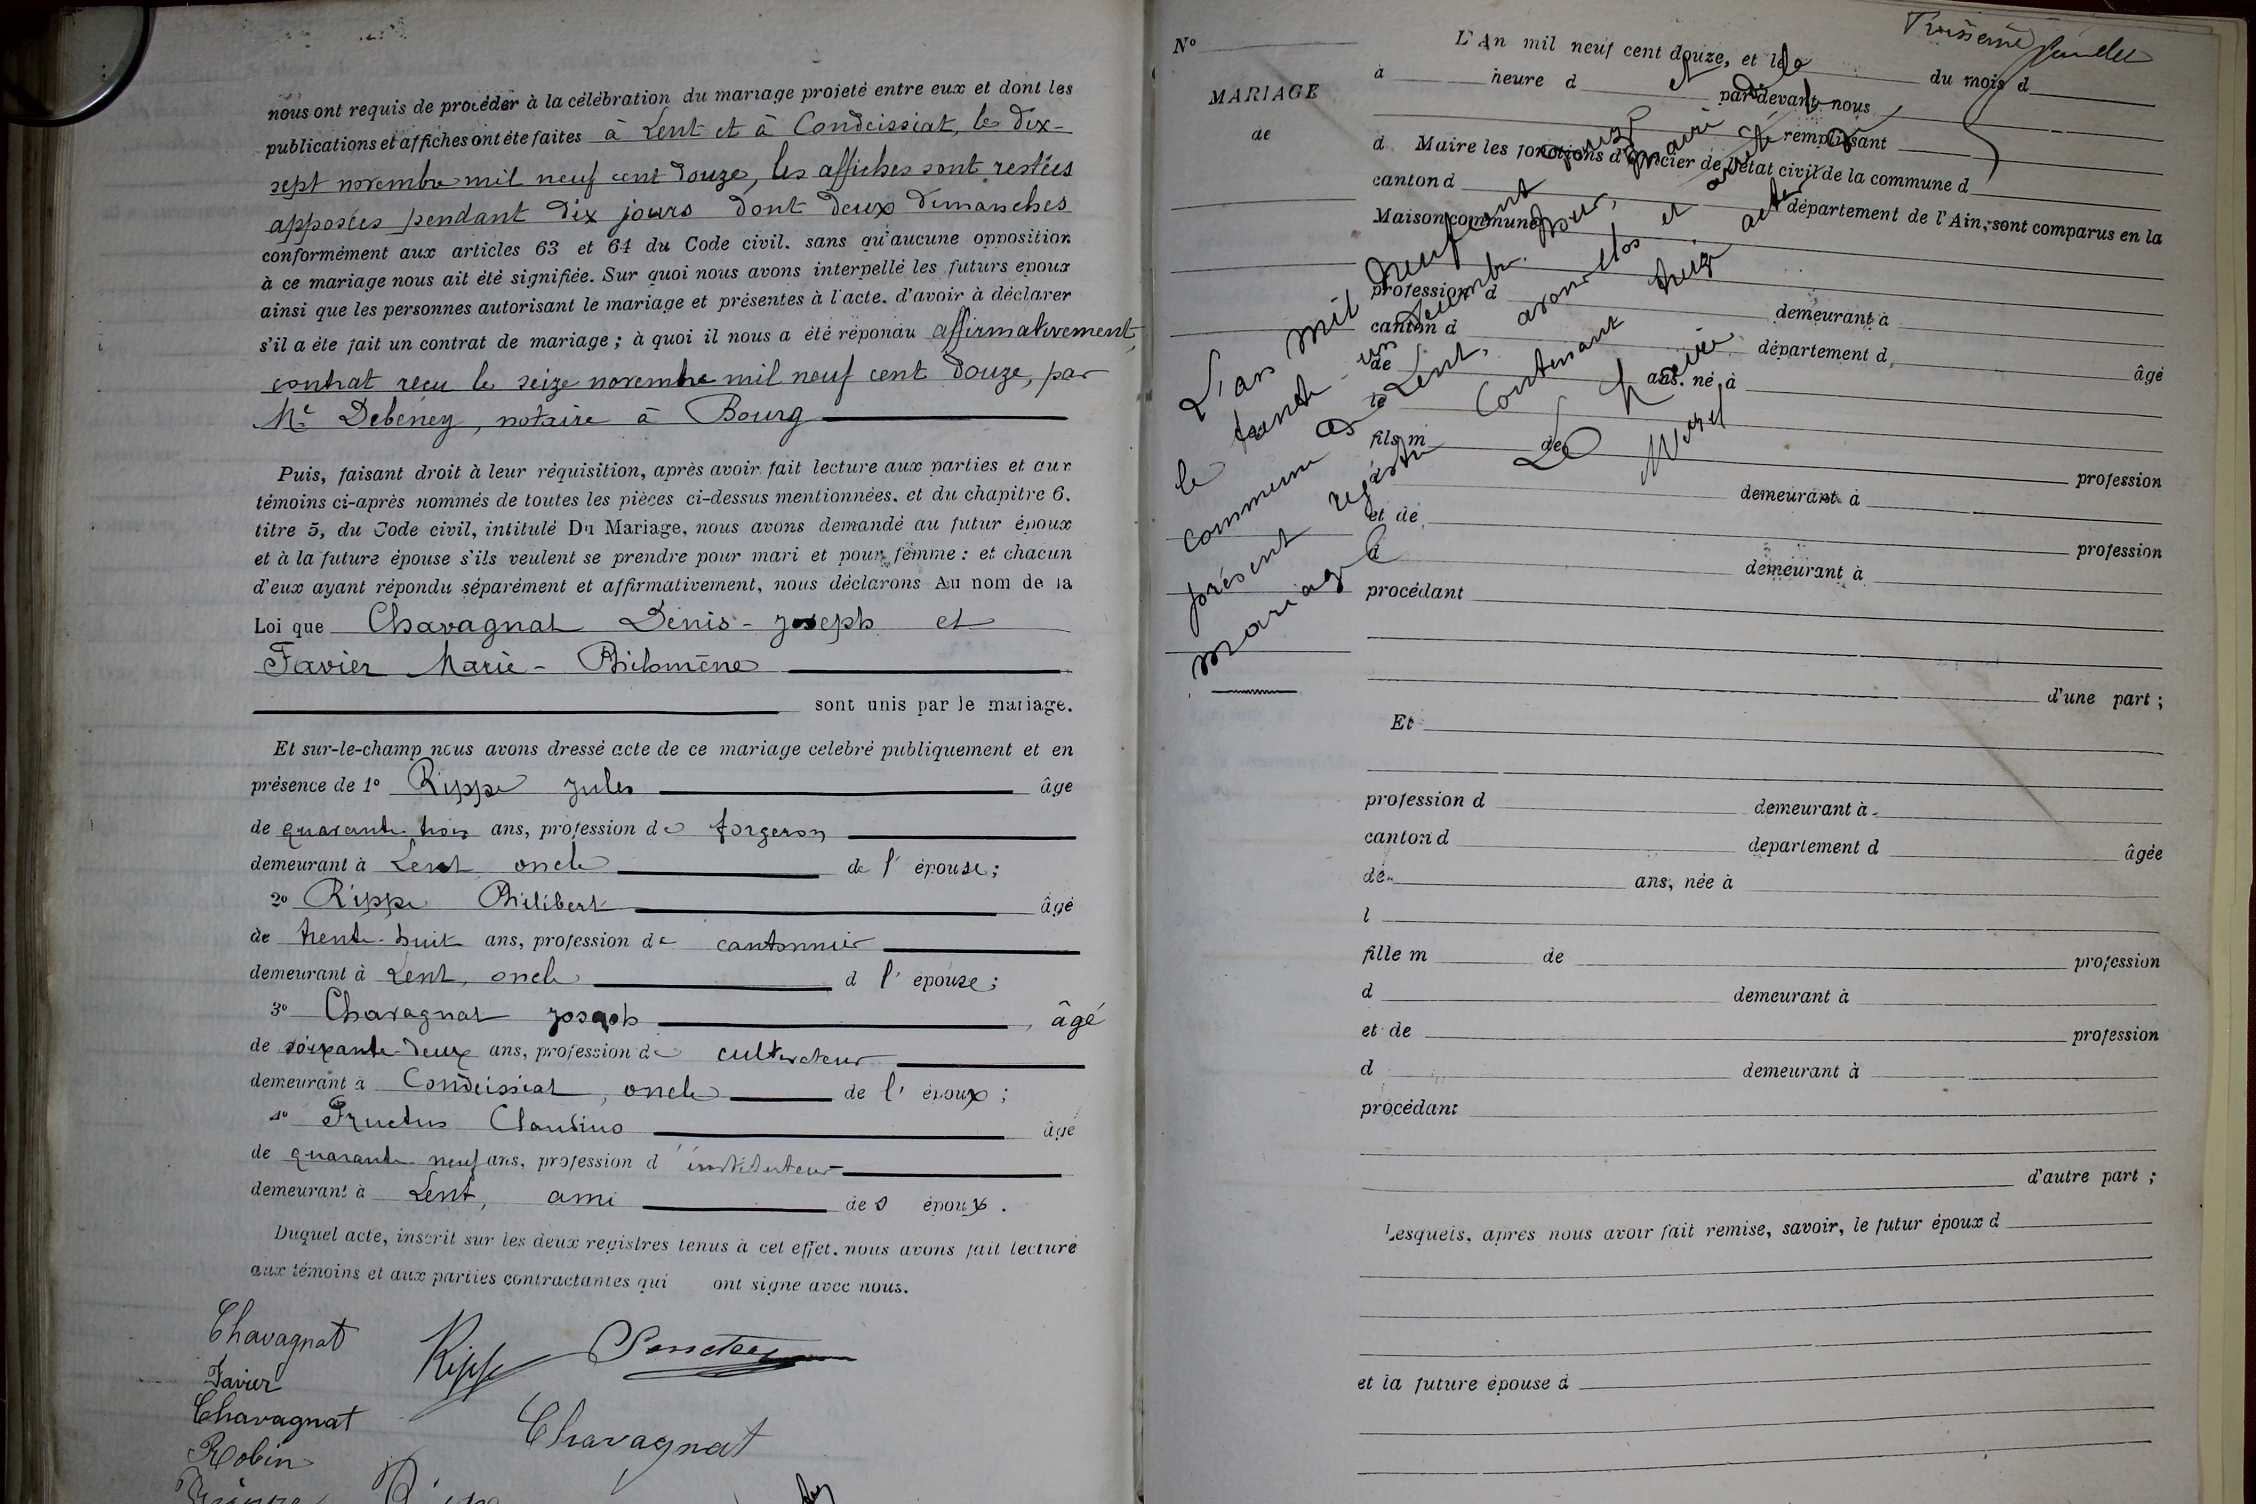 nous ont requis de procéder à la célébration du mariage projeté entre eux et dont les
publications et affiches ont été faites à Lent et à Condeissiat, les dix-
sept novembre mil neuf cent douze, les affiches sont restées
apposées pendant dix jours dont deux dimanches
conformément aux articles 63 et 64 du Code civil. sans qu'aucune opposition
à ce mariage nous ait été signifiée. Sur quoi nous avons interpellé les futurs époux
ainsi que les personnes autorisant le mariage et présentes à l'acte. d'avoir à déclarer
s'il a été fait un contrat de mariage ; à quoi il nous a été répondu affirmativement,
contrat reçu le seize novembre mil neuf cent douze, par
Me Debeney, notaire à Bourg
Puis, faisant droit à leur réquisition, après avoir fait lecture aux parties et aux
témoins ci-après nommés de toutes les pièces ci-dessus mentionnées. et du chapitre 6.
titre 5, du Code civil, intitulé Du Mariage, nous avons demandé au futur époux
et à la future épouse s'ils veulent se prendre pour mari et pour femme : et chacun
d'eux ayant répondu séparément et affirmativement, nous déclarons Au nom de la
Loi que Chavagnat Denis-Joseph et
Favier Marie-Philomène
sont unis par le mariage.
Et sur-le-champ nous avons dressé acte de ce mariage célébré publiquement et en
présence de 1° Rippe Jules âgé
de quarante-trois ans, profession de forgeron
demeurant à Lent, oncle de l'épouse ;
2° Rippe Philibert âgé
de trente-huit ans, profession de cantonnier
demeurant à Lent, oncle d l'épouse ;
3° Chavagnat Joseph, âgé
de soixante-deux ans, profession de cultivateur
demeurant à Condeissiat, oncle de l'époux ;
4° Fructus Claudius âgé
de quarante-neuf ans, profession d'instituteur
demeurant à Lent, ami des époux.
Duquel acte, inscrit sur les deux registres tenus à cet effet. nous avons fait lecture
aux témoins et aux parties contractantes qui ont signé avec nous.
Chavagnat Rippe
Favier
Chavagnat Chavagnat
Robin
N°
MARIAGE
de
Troisième
L'An mil neuf cent douze, et le du mois d
à heure d par devant nous
remplissant
d Maire les fonctions d'officier de l'état civil de la commune d
canton d département de l'Ain, sont comparus en la
Maison commune
profession d demeurant à
canton d département d âgé
de ans. né à
le
fils m de profession
demeurant à
et de profession
d demeurant à
procédant
d'une part ;
L'an mil neuf cent douze et
le trente-un décembre, nous, maire de la
commune de Lent, avons clos et arrêté le
présent registre contenant huit actes de
mariage
Le Maire
Morel
Et
profession d demeurant à
canton d département d âgée
de ans, née à
l
fille m de profession
d demeurant à
et de profession
d demeurant à
procédant
d'autre part ;
Lesquels, après nous avoir fait remise, savoir, le futur époux d
et la future épouse d